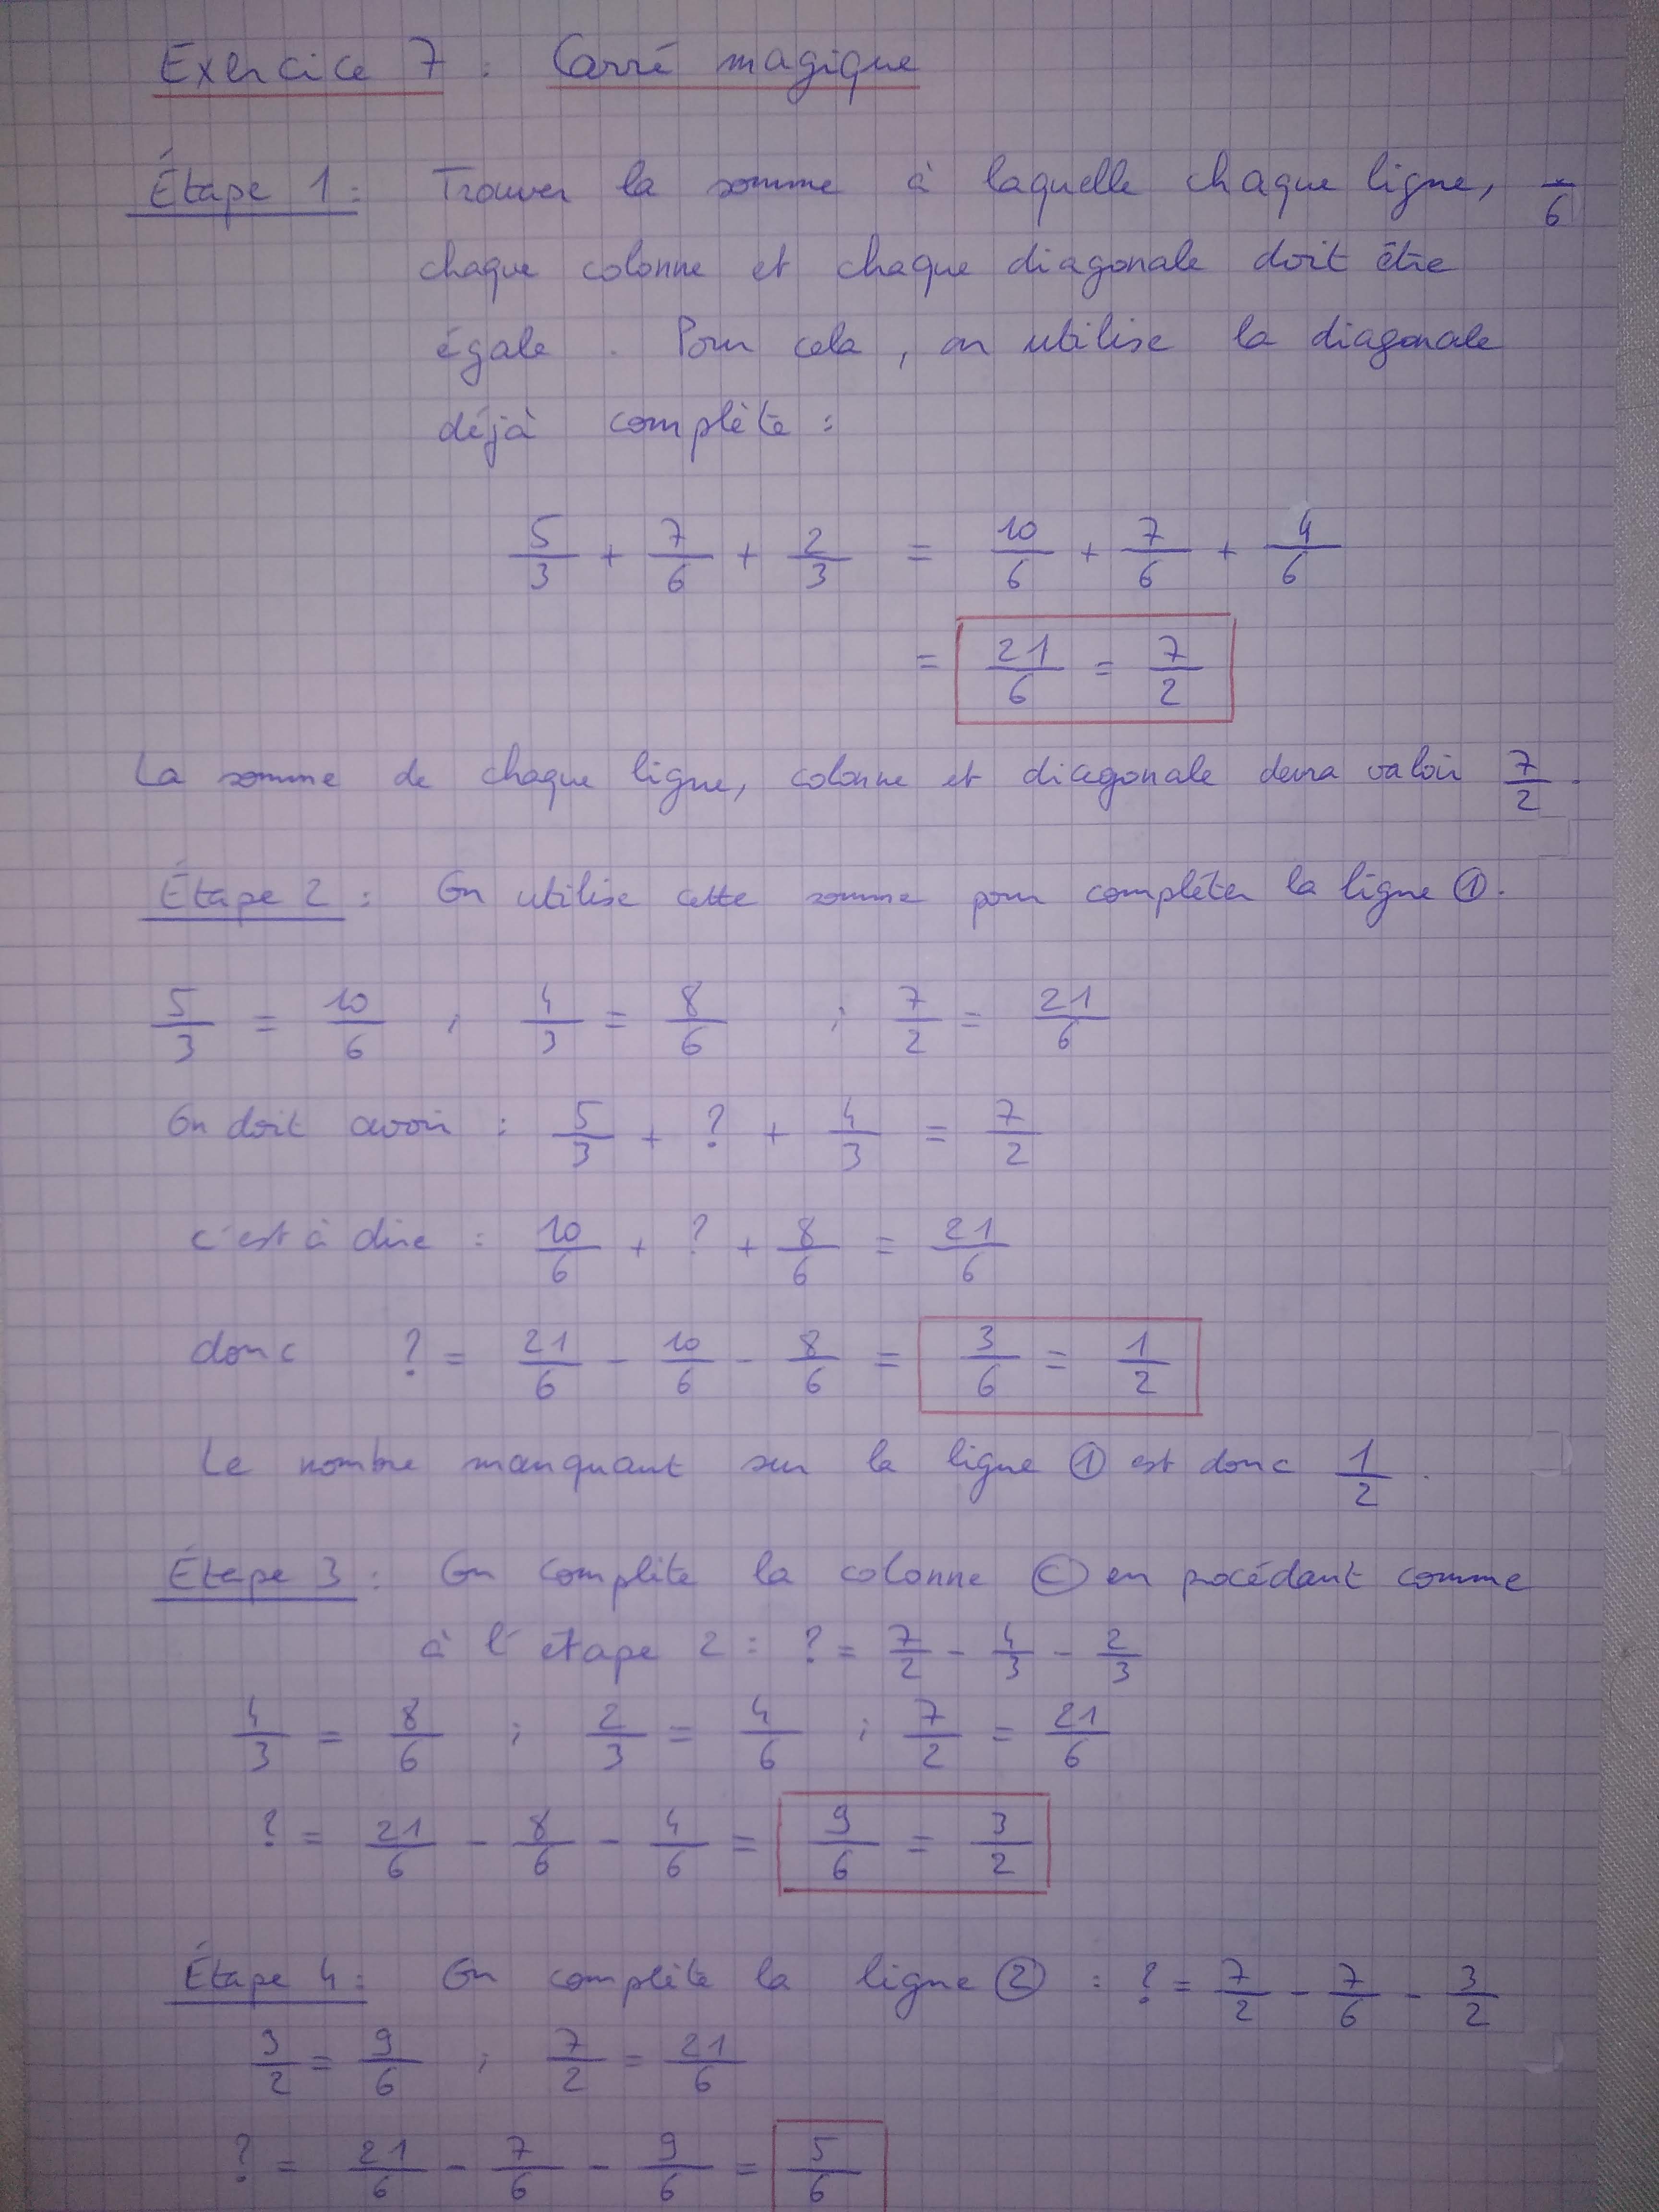 Exercice 7 : Carré magique
Étape 1 : Trouver la somme à laquelle chaque ligne, /6
chaque colonne et chaque diagonale doit être
égale. Pour cela, on utilise la diagonale
déjà complète :
5/3 + 7/6 + 2/3 = 10/6 + 7/6 + 4/6
= 21/6 = 7/2
La somme de chaque ligne, colonne et diagonale devra valoir 7/2.
Étape 2 : On utilise cette somme pour compléter la ligne ①.
5/3 = 10/6 ; 4/3 = 8/6 ; 7/2 = 21/6
On doit avoir : 5/3 + ? + 4/3 = 7/2
c'est à dire : 10/6 + ? + 8/6 = 21/6
donc ? = 21/6 - 10/6 - 8/6 = 3/6 = 1/2
Le nombre manquant sur la ligne ① est donc 1/2.
Étape 3 : On complète la colonne Ⓒ en procédant comme
à l'étape 2 : ? = 7/2 - 4/3 - 2/3
4/3 = 8/6 ; 2/3 = 4/6 ; 7/2 = 21/6
? = 21/6 - 8/6 - 4/6 = 9/6 = 3/2
Étape 4 : On complète la ligne ② : ? = 7/2 - 7/6 - 3/2
3/2 = 9/6 ; 7/2 = 21/6
? = 21/6 - 7/6 - 9/6 = 5/6